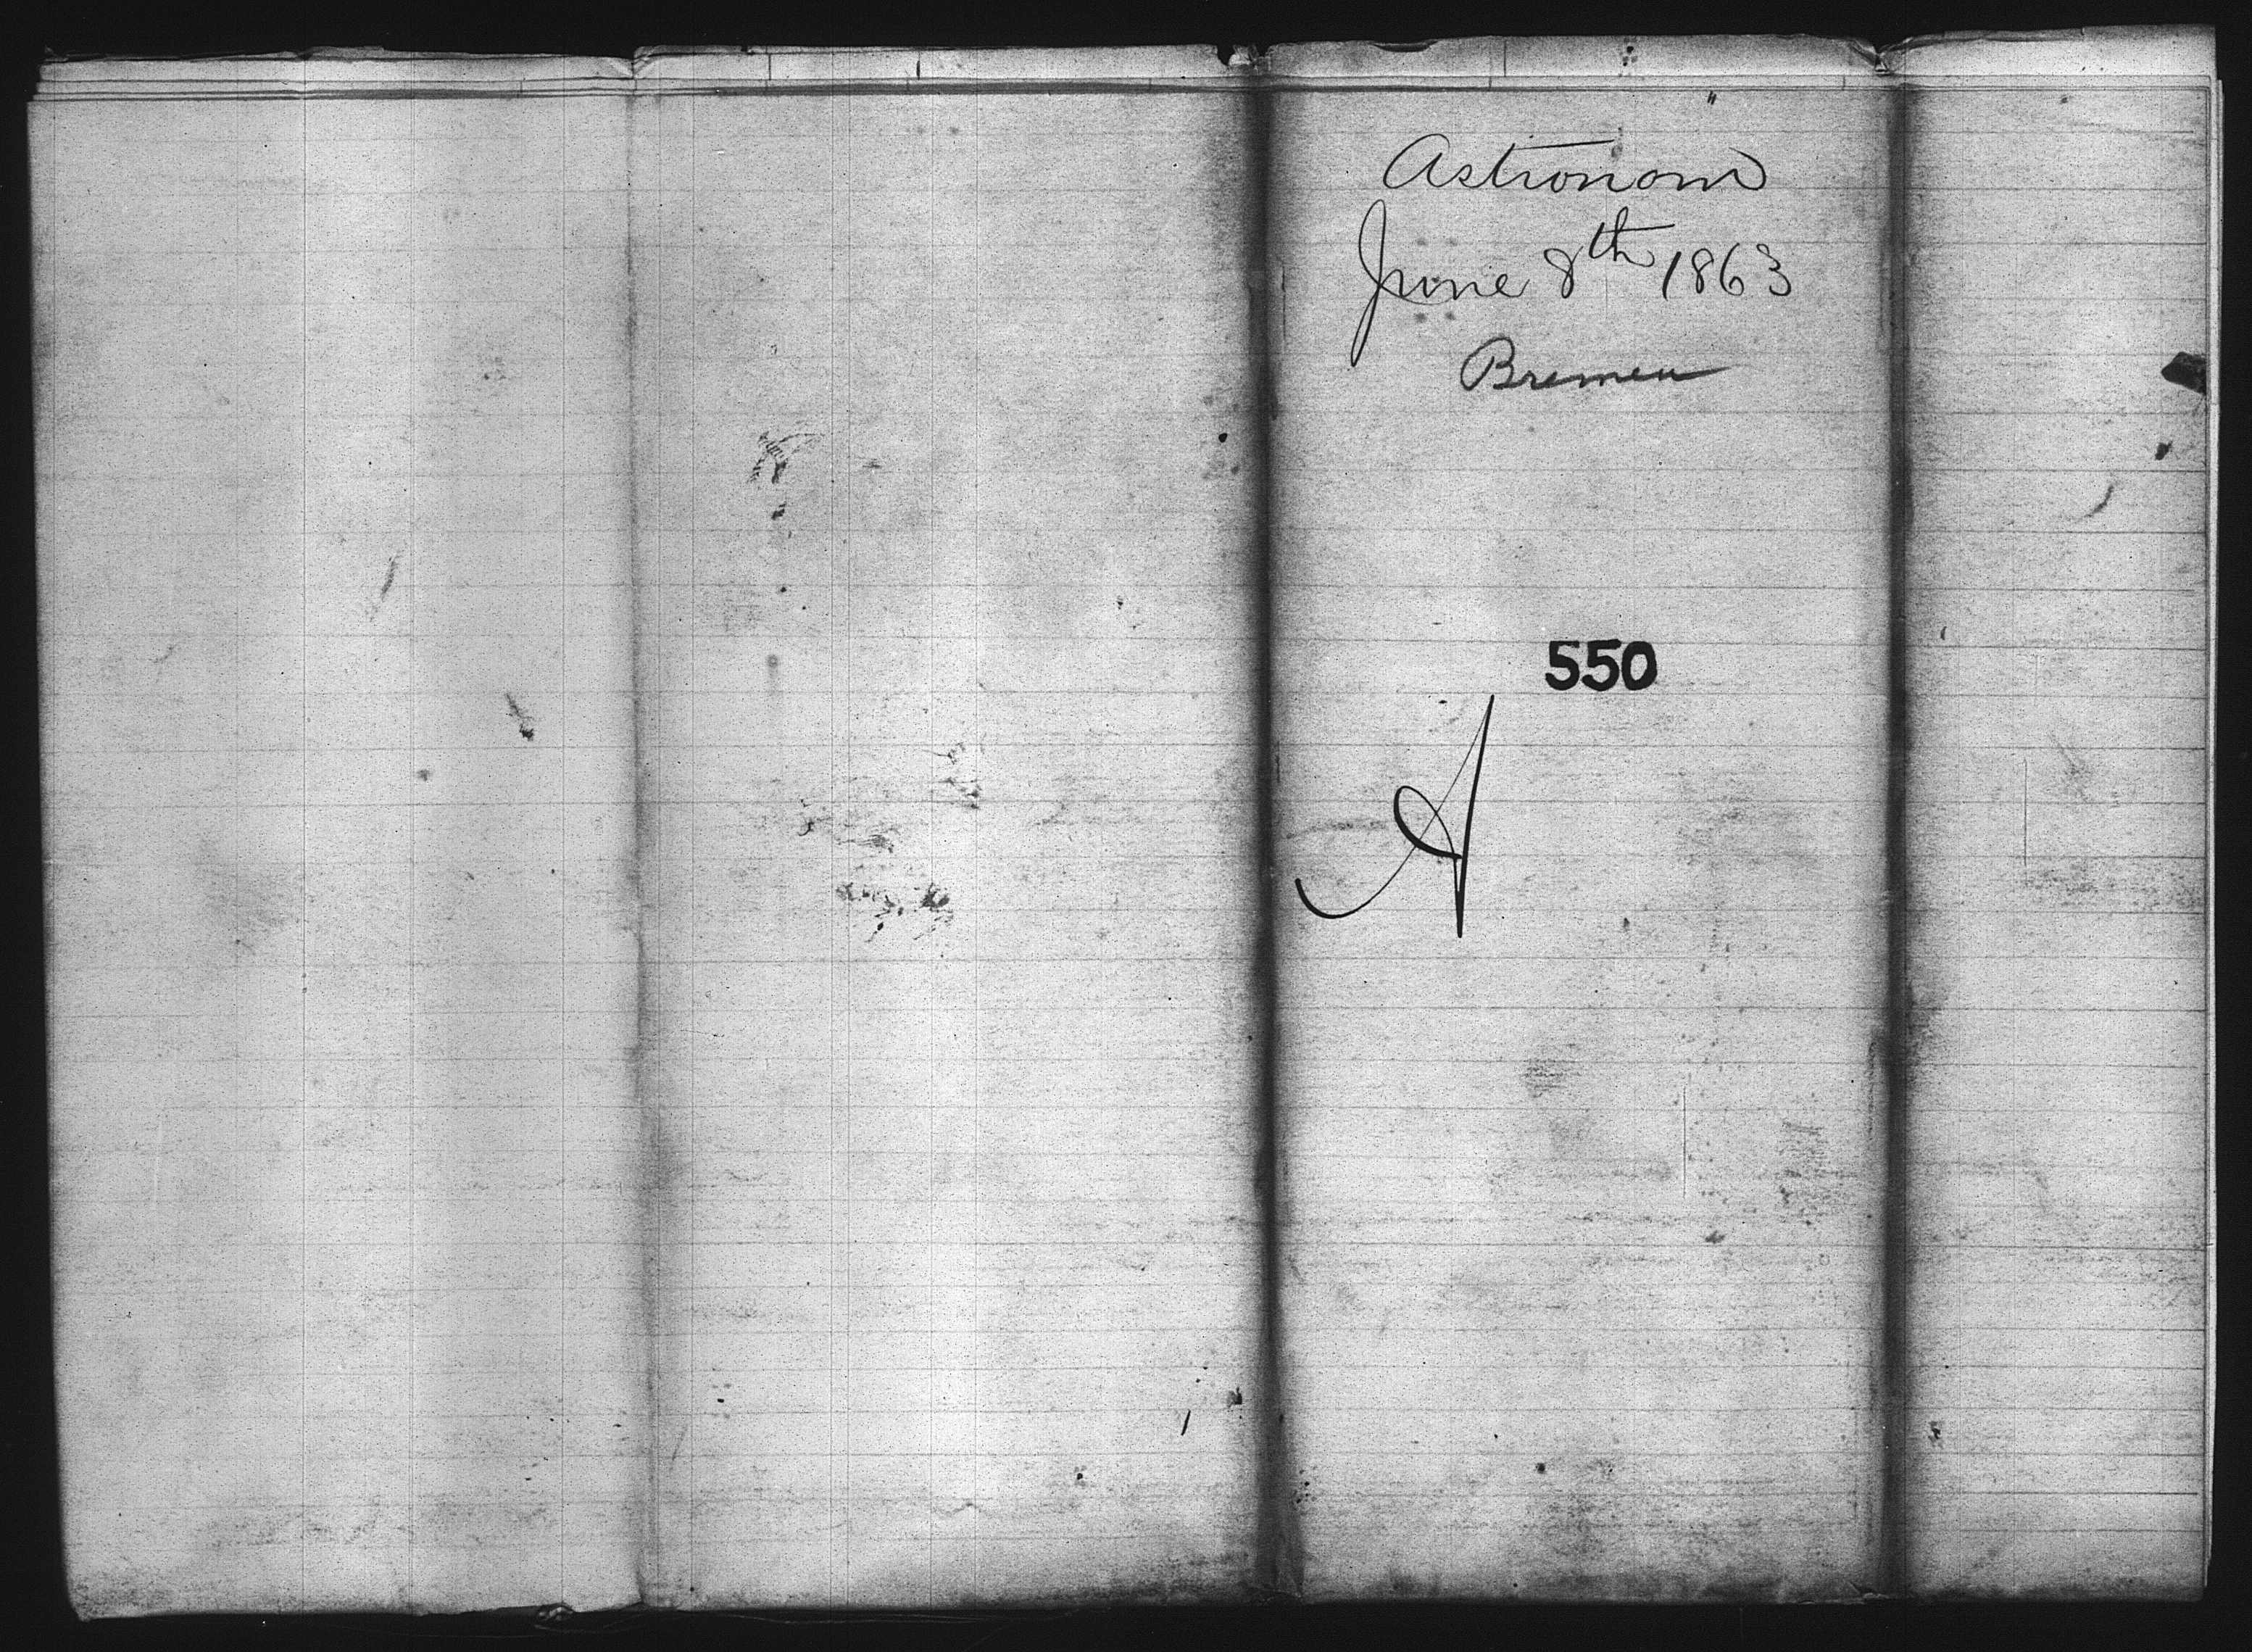 Astronom
June 8th 1863
Bremen
550
A